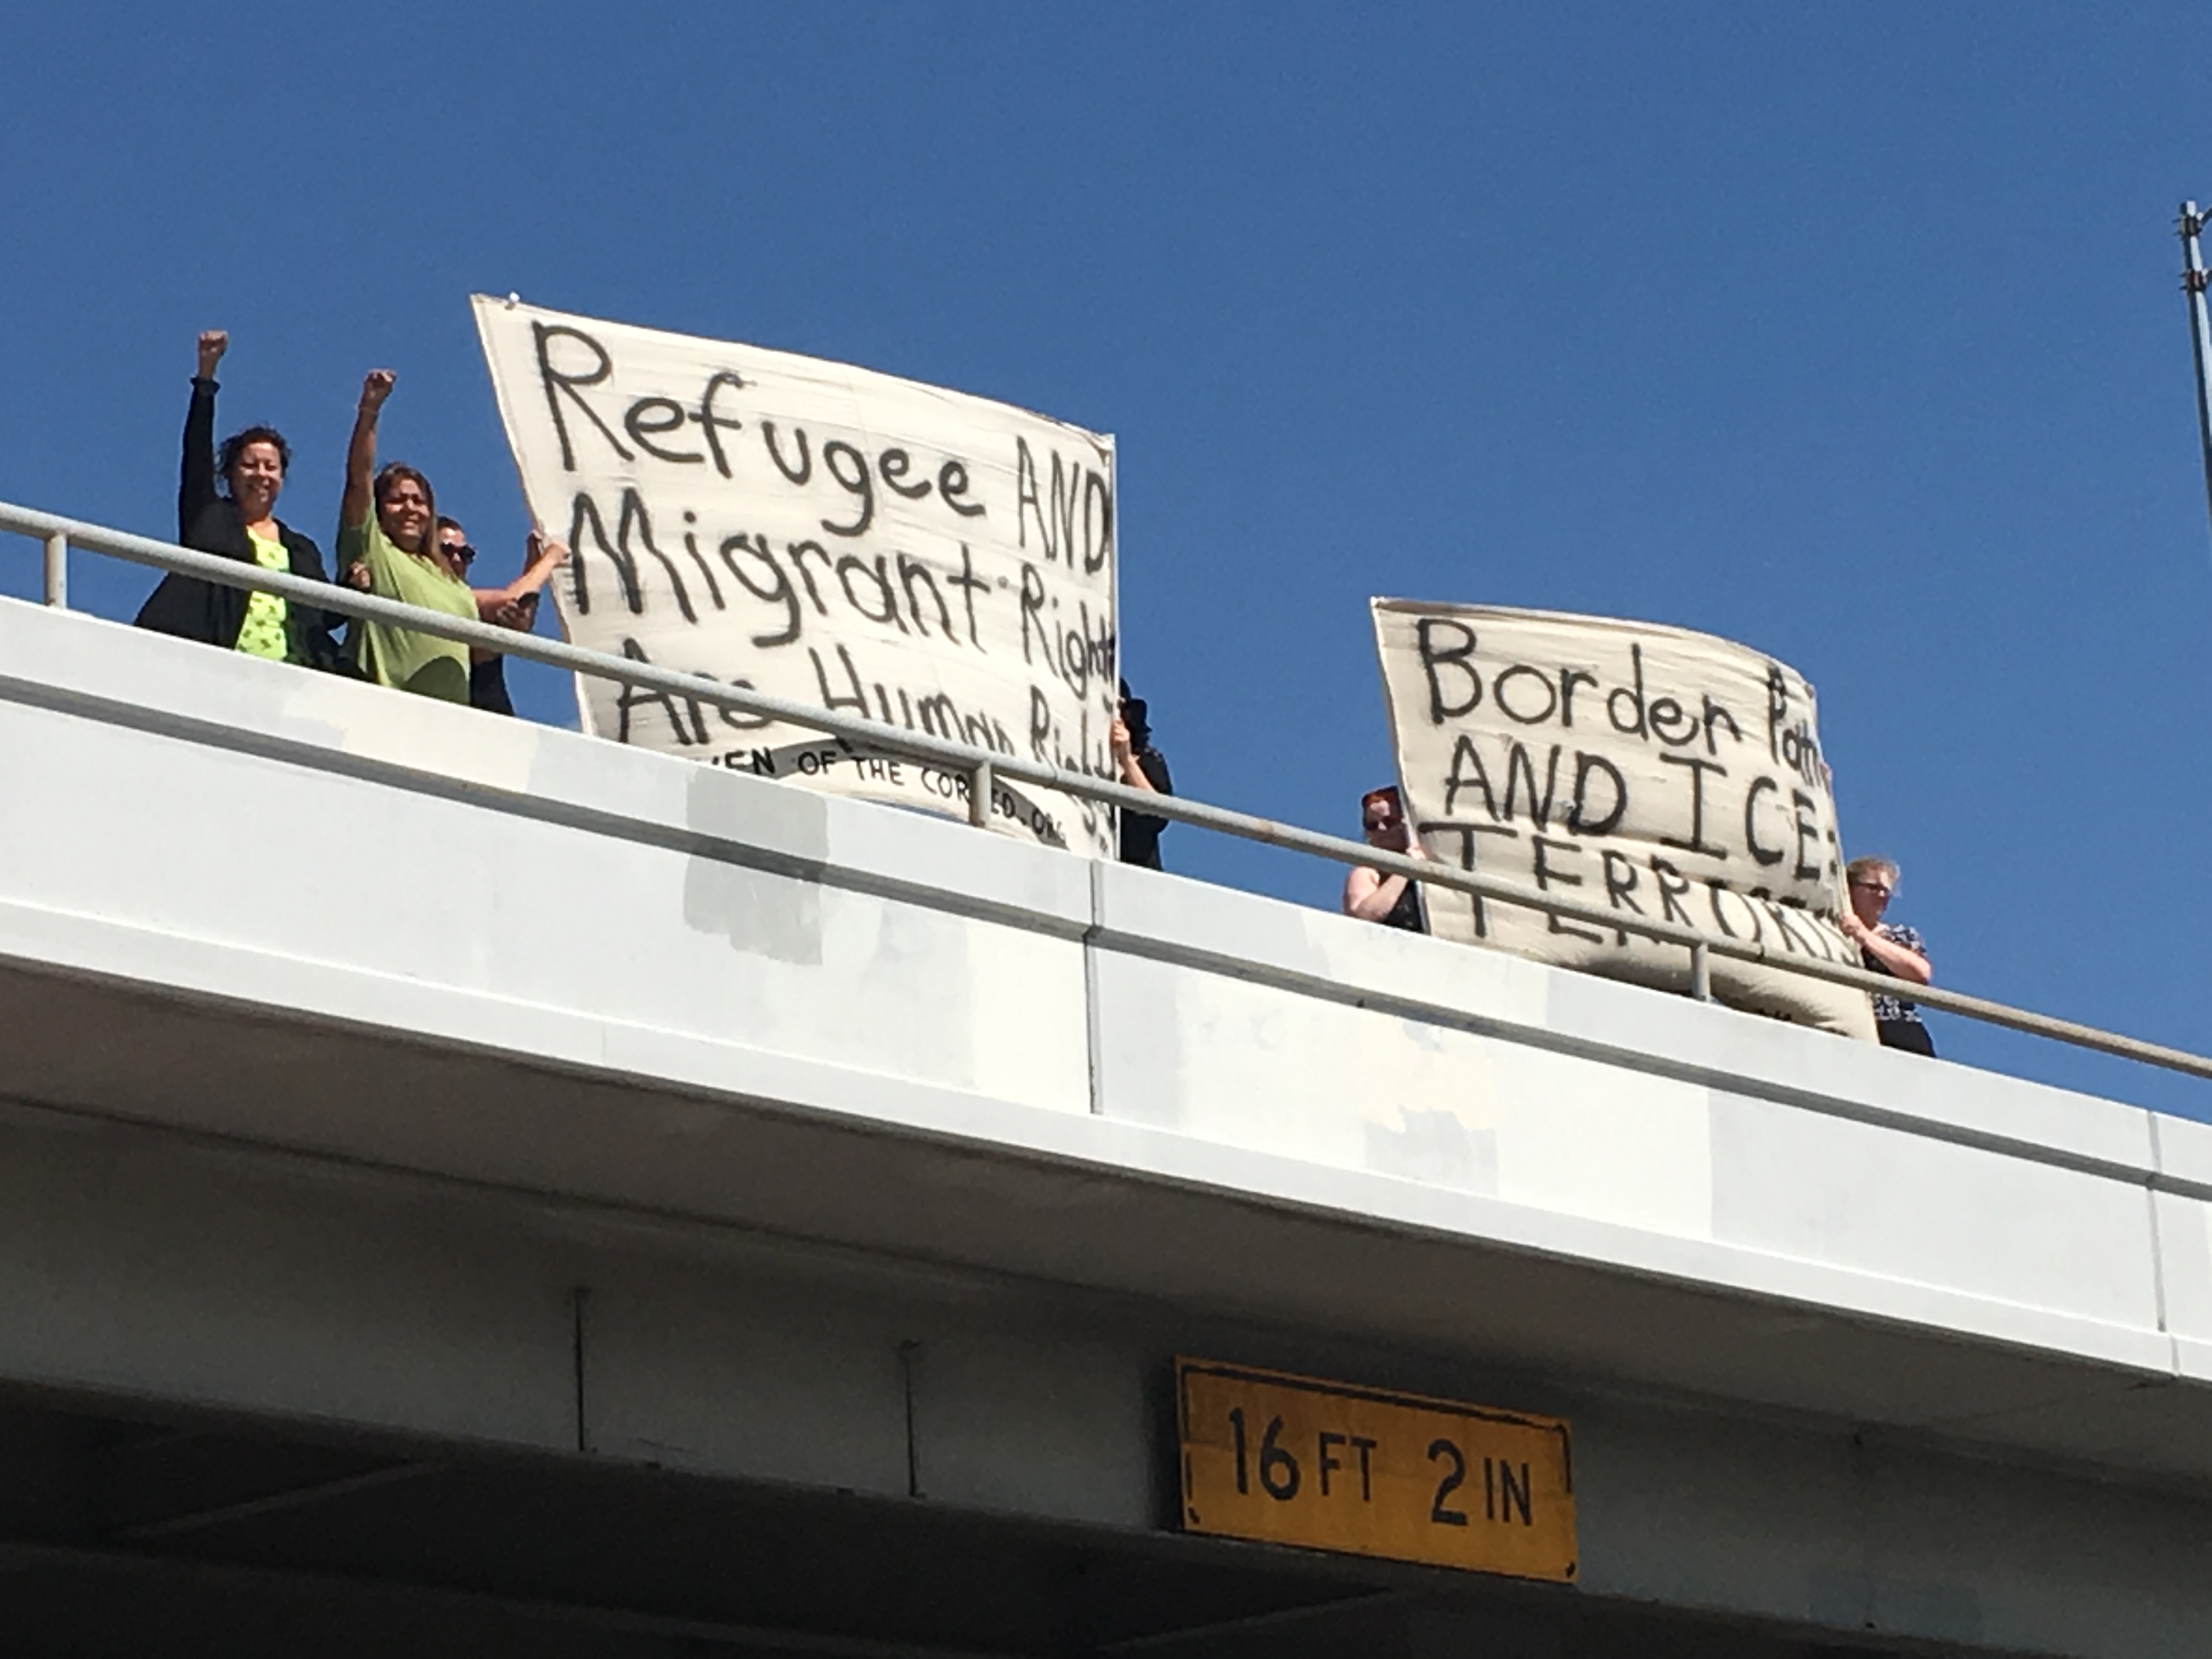 Refugee AND
Migrant Rights
Are Human Rights
OF THE COR ED.ORG
Border
AND ICE:
TERRORIS
16 FT 2 IN